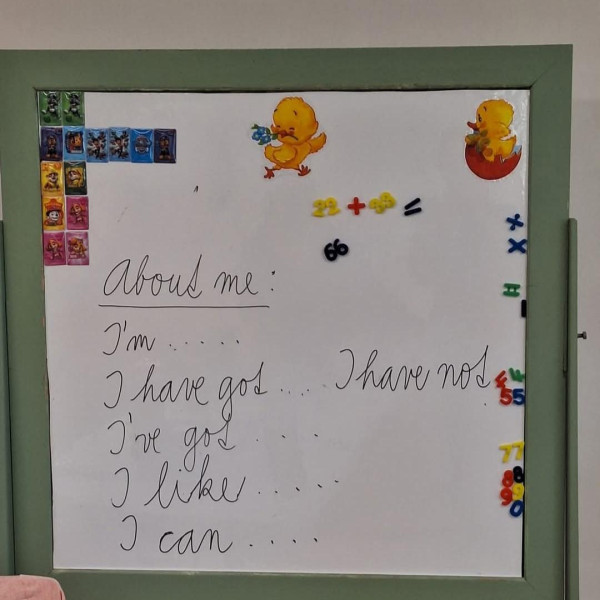 About me:
I'm .....
I have got .... I have not
I've got ....
I like .....
I can ....
66